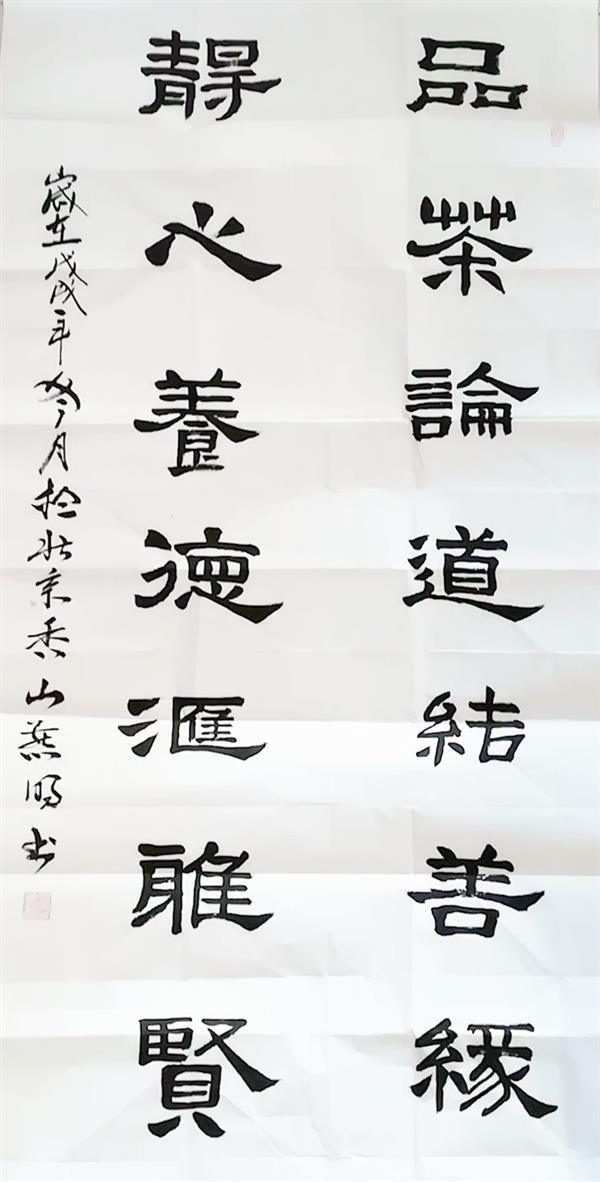 品茶論道結善緣
靜心養德滙雅賢
歲在戊戌年冬月於北京香山燕明书